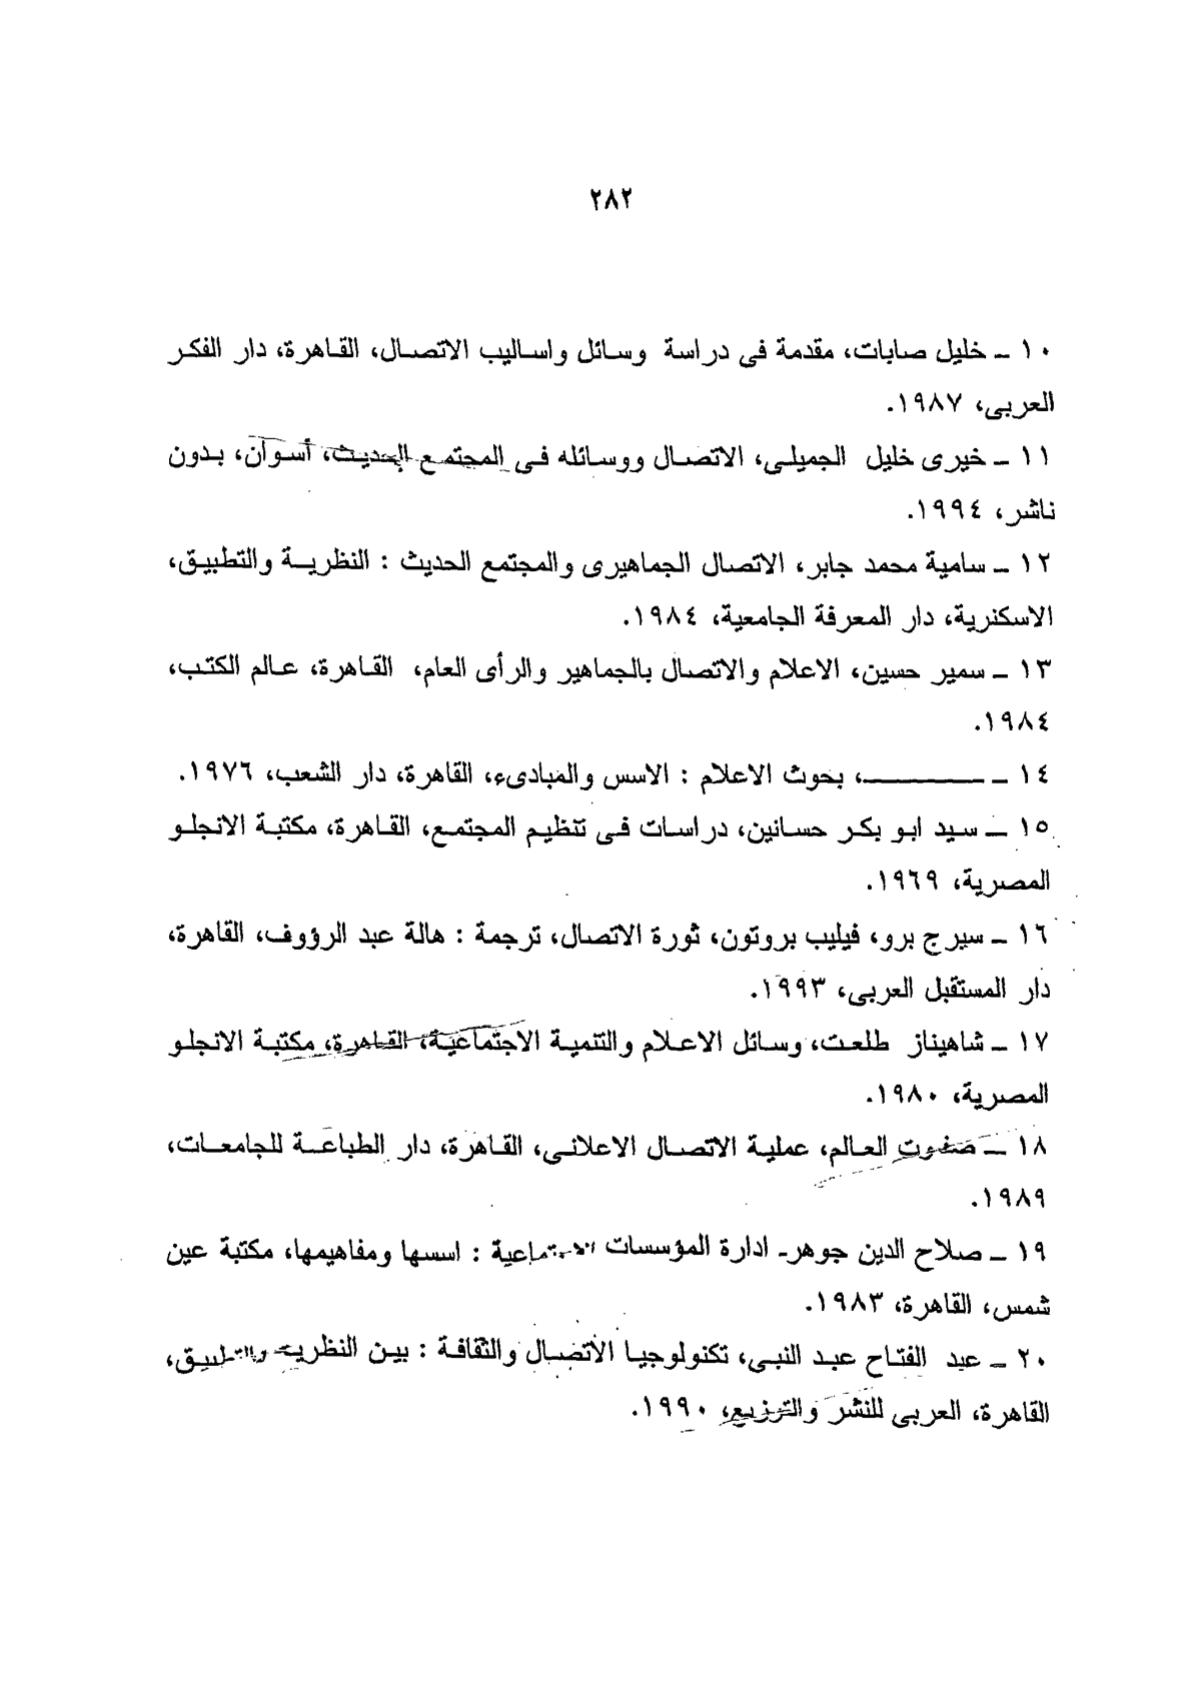 ٢٨٢
١٠ ـ خليل صابات، مقدمة فى دراسة وسائل واساليب الاتصال، القاهرة، دار الفكر
العربى، ١٩٨٧.
١١ ـ خيرى خليل الجميلى، الاتصال ووسائله فى المجتمع الحديث، أسوان، بدون
ناشر، ١٩٩٤.
١٢ ـ سامية محمد جابر، الاتصال الجماهيرى والمجتمع الحديث : النظرية والتطبيق،
الاسكنرية، دار المعرفة الجامعية، ١٩٨٤.
١٣ ـ سمير حسين، الاعلام والاتصال بالجماهير والرأى العام، القاهرة، عالم الكتب،
١٩٨٤.
١٤ ـ ـــــــــــ، بحوث الاعلام : الاسس والمبادىء، القاهرة، دار الشعب، ١٩٧٦.
١٥ ـ سيد ابو بكر حسانين، دراسات فى تنظيم المجتمع، القاهرة، مكتبة الانجلو
المصرية، ١٩٦٩.
١٦ ـ سيرج برو، فيليب بروتون، ثورة الاتصال، ترجمة : هالة عبد الرؤوف، القاهرة،
دار المستقبل العربى، ١٩٩٣.
١٧ ـ شاهيناز طلعت، وسائل الاعلام والتنمية الاجتماعية، القاهرة، مكتبة الانجلو
المصرية، ١٩٨٠.
١٨ ـ صفوت العالم، عملية الاتصال الاعلانى، القاهرة، دار الطباعة للجامعات،
١٩٨٩.
١٩ ـ صلاح الدين جوهر۔ ادارة المؤسسات الاجتماعية : اسسها ومفاهيمها، مكتبة عين
شمس، القاهرة، ١٩٨٣.
٢٠ ـ عبد الفتاح عبد النبى، تكنولوجيا الاتصال والثقافة : بين النظرية والتطبيق،
القاهرة، العربى للنشر والتوزيع، ١٩٩٠.